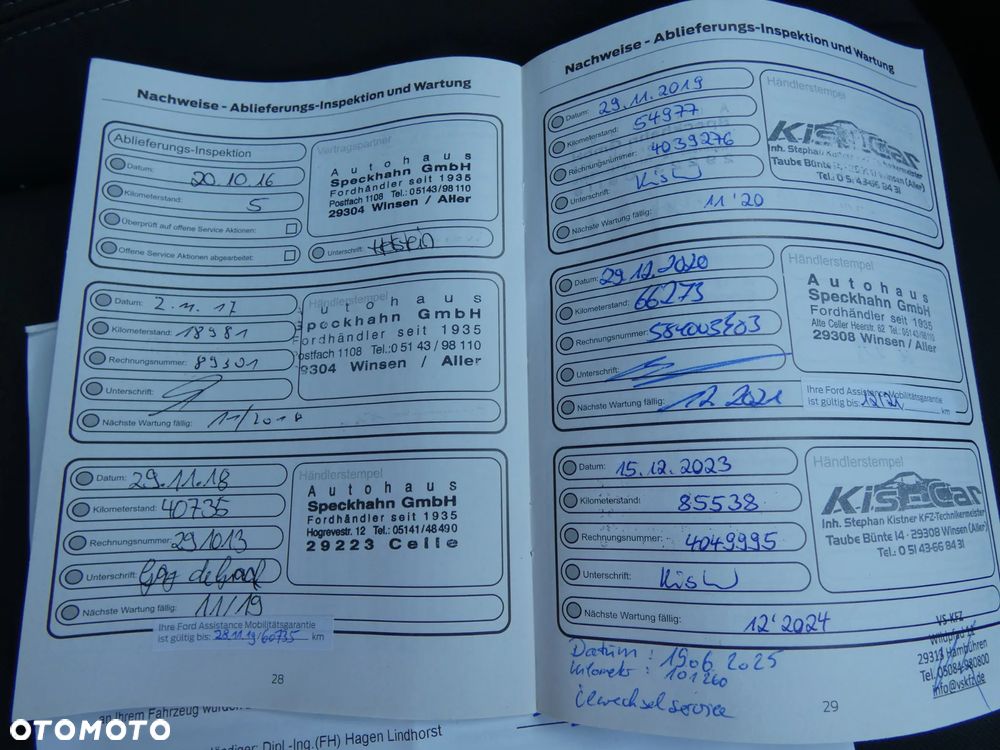 Nachweise - Ablieferungs-Inspektion und Wartung
Ablieferungs-Inspektion
Datum: 20.10.16
Kilometerstand: 5
Überprüft auf offene Service Aktionen:
Offene Service Aktionen abgearbeitet:
Vertragspartner
Autohaus
Speckhahn GmbH
Fordhändler seit 1935
Postfach 1108 Tel.: 05143/98 110
29304 Winsen / Aller
Unterschrift:
Datum: 2.11.17
Kilometerstand: 18981
Rechnungsnummer: 89301
Unterschrift:
Nächste Wartung fällig: 11/2018
Händlerstempel
utohaus
peckhahn GmbH
Fordhändler seit 1935
Postfach 1108 Tel.: 05143/98110
9304 Winsen / Aller
Datum: 29.11.18
Kilometerstand: 40735
Rechnungsnummer: 291013
Unterschrift:
Nächste Wartung fällig: 11/19
Händlerstempel
Autohaus
Speckhahn GmbH
Fordhändler seit 1935
Hogrevestr. 12 Tel.: 05141/48490
29223 Celle
Ihre Ford Assistance Mobilitätsgarantie
ist gültig bis: 28.11.19/60735 km
28
Nachweise - Ablieferungs-Inspektion und Wartung
Datum: 29.11.2019
Kilometerstand: 54977
Rechnungsnummer: 4039276
Unterschrift:
Nächste Wartung fällig: 11'20
Händlerstempel
Kis-Car
Inh. Stephan Kistner KFZ-Technikermeister
Taube Bünte 14 · 29308 Winsen (Aller)
Tel.: 0 51 43-66 84 31
Datum: 29.12.2020
Kilometerstand: 66273
Rechnungsnummer:
Unterschrift:
Nächste Wartung fällig: 12 2021
Händlerstempel
Autohaus
Speckhahn GmbH
Fordhändler seit 1935
Alte Celler Heerstr. 62 Tel.: 05143/
29308 Winsen / Aller
Ihre Ford Assistance Mobilitätsgarantie
ist gültig bis: 12/21 km
Datum: 15.12.2023
Kilometerstand: 85538
Rechnungsnummer: 4049995
Unterschrift:
Nächste Wartung fällig: 12'2024
Händlerstempel
Kis-Car
Inh. Stephan Kistner KFZ-Technikermeister
Taube Bünte 14 · 29308 Winsen (Aller)
Tel.: 0 51 43-66 84 31
Datum: 19.06.2025
Kilometer: 101260
Ölwechsel service
VS-KFZ
29313 Hambühren
Tel. 05084-980800
info@vskfz.de
29
an Ihrem Fahrzeug wurden
Dipl.-Ing.(FH) Hagen Lindhorst
OTOMOTO